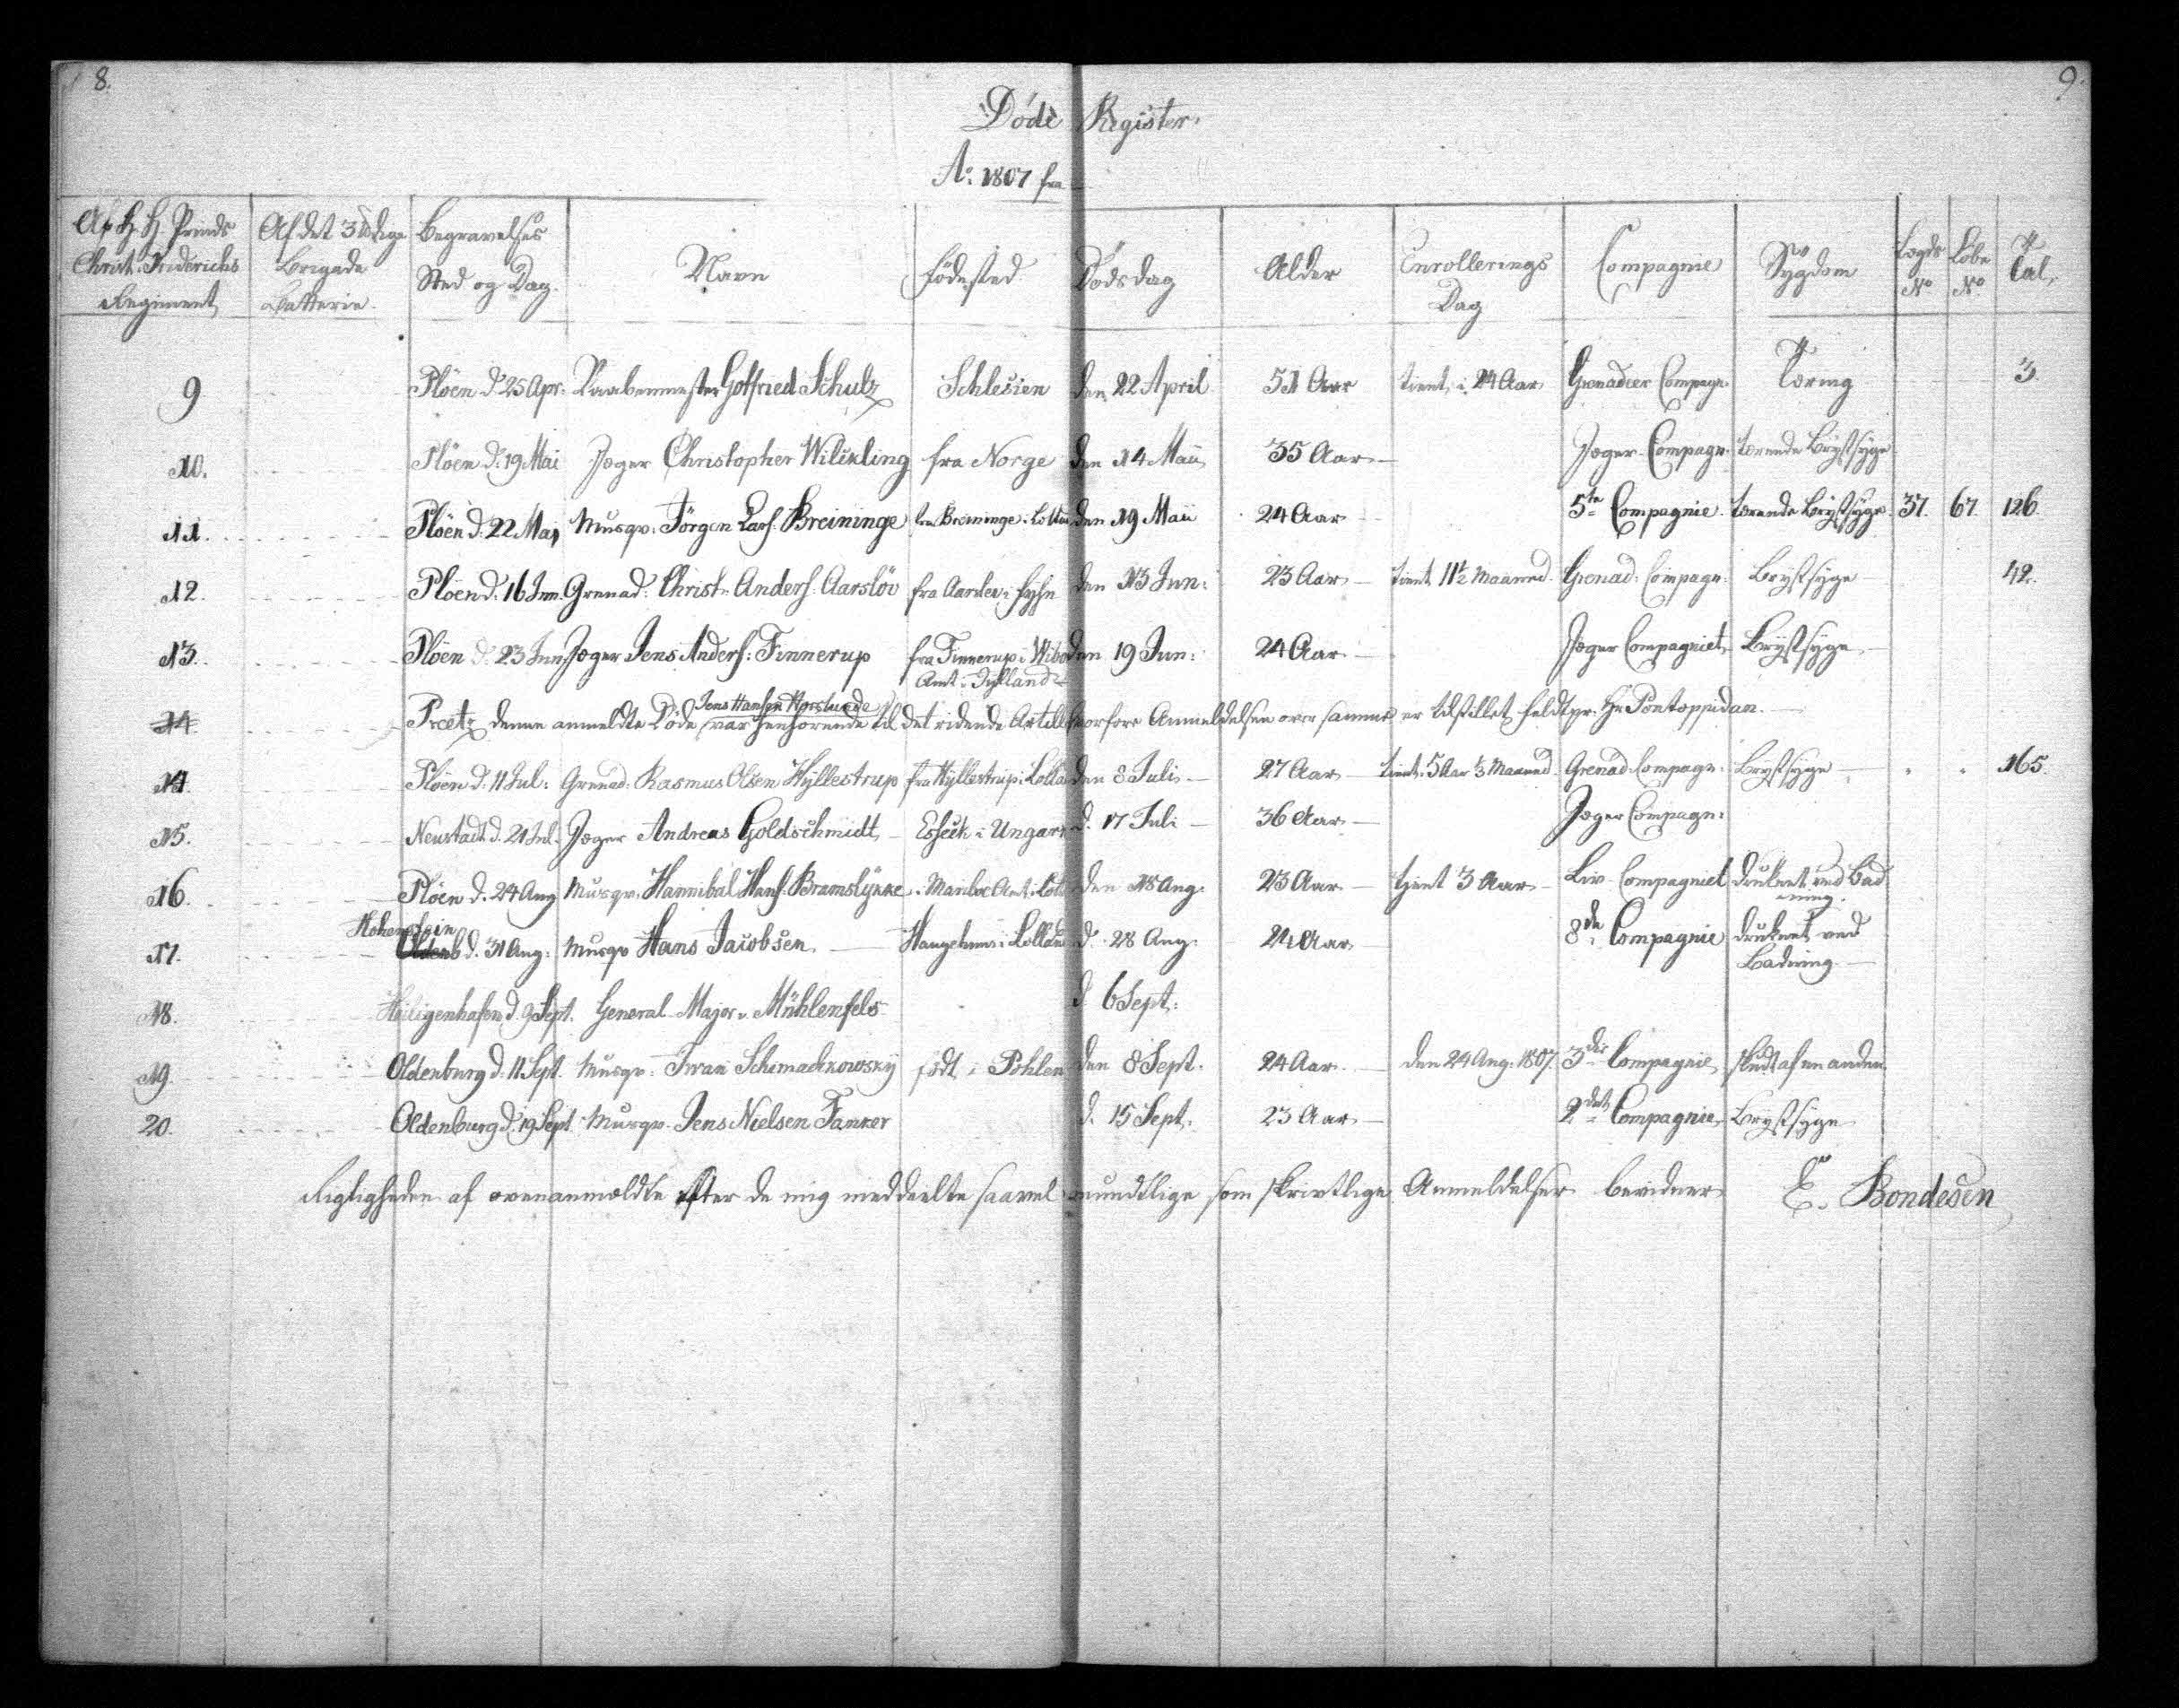 8.
9.
Döde Register.
A° 1807 fra
Af H. H. Prinds Christ. Friderichs Regiment
Af det 3 Brigade Batterie
Begravelses Sted og Dag
Navn
Födested
Dödsdag
Alder
Enrollerings Dag
Compagnie
Sygdom
Lægds N°
Löbe N°
Tal.
9 Plöen d. 25 Apr. Vaabenmester Gotfried Schulz Schlesien den 22 April 51 Aar tient i 24 Aar Grenadeer Compagn. Tæring 3.
10. Plöen d. 19 Mai Jæger Christopher Wilckling fra Norge den 14 Maii 35 Aar Jæger Compagn. tærende Brystsyge
11. Plöen d. 22 Mai Musqv. Jörgen Lars. Breininge fra Breininge i den 19 Maii 24 Aar 5te Compagnie tærende Brystsyge 37. 67. 126.
12. Plöen d. 16 Jun. Grenad. Christ. Anders. Aarslöv fra i Fyhn den 13 Jun: 23 Aar tient 11½ Maaned Grenad. Compagn. Brystsyge 42.
13. Plöen d. 23 Jun. Jæger Jens Anders: Finnerup fra Finnerup i den 19 Jun: 24 Aar Jæger Compagniet Brystsyge
Amt i Jylland
Jens Hansen Horslunde
14 Preetz denne anmeldte Döde var henhörende til det ridende Artill. hvorfore Anmeldelsen over samme er tilstillet Feldtpr. Hr Pontoppidan.
14 Plöen d. 11 Jul: Grenad. Rasmus Olsen Hyllestrup fra Hyllestrup i Lolla den 8 Juli 27 Aar tient 5 Aar 3 Maaned Grenad. Compagn. Brystsyge 165.
15. Neustadt d. 21 Jul. Jæger Andreas Goldschmidt Esseck i Ungarn d. 17 Juli 36 Aar Jæger Compagn:
16 Plöen d. 24 Aug Musqv. Hannibal Hans. Bramslykke i Mariboe Amt i Loll den 18 Aug. 23 Aar tjent 3 Aar Liv Compagniet druknet ved Bad
ning.
Hohenstein
17. Oldenb d. 31 Aug: Musqv Hans Jacobsen i Lolland d. 28 Aug. 24 Aar 8de Compagnie druknet ved
Badning
18. Heiligenhafen d. 9 Sept. General-Major v. Mühlenfels d 6 Sept:
19. Oldenburg d. 11 Sept. Musqv. Iwan Schimackowsky födt i Pohlen den 8 Sept. 24 Aar den 24 Aug. 1807 3die Compagnie skudt af en anden
20. Oldenburg d. 19 Sept Musqv. Jens Nielsen Tanker d. 15 Sept. 23 Aar 2det Compagnie Brystsyge
Rigtigheden af ovenanmeldte efter de mig meddeelte saavel mundtlige som skrivtlige Anmeldelser bevidner E. Bondesen